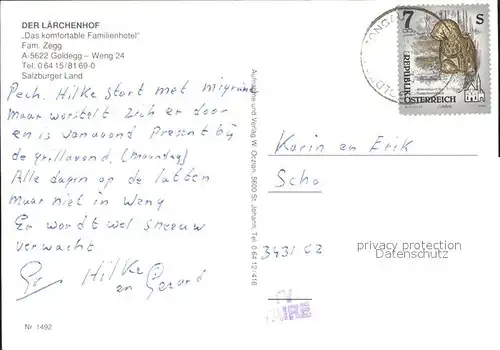 DER LÄRCHENHOF
„Das komfortable Familienhotel"
Fam. Zegg
A-5622 Goldegg – Weng 24
Tel. 0 64 15/81 69-0
Salzburger Land
Pech. Hilke start met migraine
Maar worstelt zich er door
en is vanavond present bij
de grillavond. (maandag)
Alle dagen op de latten
maar niet in Weng
Er wordt wel sneeuw
verwacht
Gr Hilke
en Gerard
Nr 1492
Aufnahme und Verlag W. Otzipn, 5600 St. Johann, Tel. 0 64 12/416
7 S
REPUBLIK
ÖSTERREICH
Karin en Erik
Scho
3431 CZ
privacy protection
Datenschutz